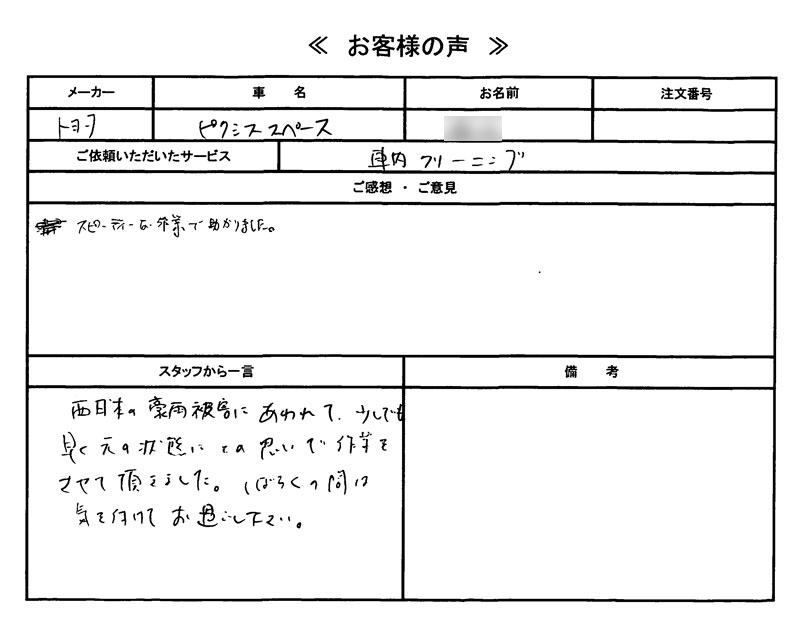 ≪ お客様の声 ≫
メーカー 車名 お名前 注文番号
トヨタ ピクシススペース
ご依頼いただいたサービス 車内クリーニング
ご感想・ご意見
スピーディーな作業で助かりました。
スタッフから一言 備考
西日本の豪雨被害にあわれて、少しでも
早く元の状態にとの思いで作業を
させて頂きました。しばらくの間は
気を付けてお過ごし下さい。